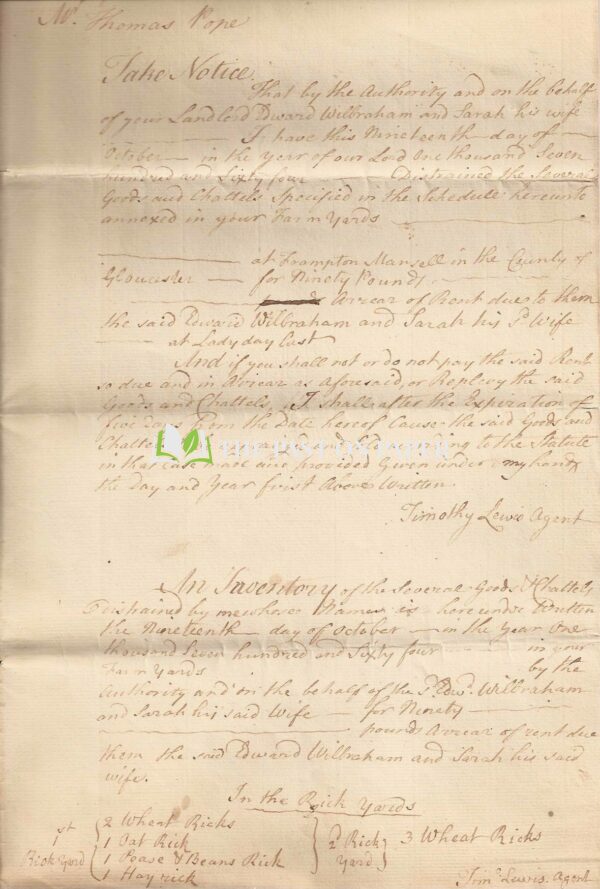 Mr. Thomas Pope
Take Notice
That by the Authority and on the behalf
of your Landlord Edward Wilbraham and Sarah his wife
I have this Nineteenth day of
October in the Year of our Lord One thousand Seven
hundred and Sixty four Distrained the Several
Goods and Chattels Specified in the Schedule hereunto
annexed in your Farm Yards
at Frampton Mansell in the County of
Gloucester for Ninety Pounds
Arrear of Rent due to them
the said Edward Wilbraham and Sarah his Sd. Wife
at Lady day last
And if you shall not or do not pay the said Rent
so due and in Arrear as aforesaid, or Replevy the said
Goods and Chattels, I shall after the Expiration of
five Days from the Date hereof Cause the said Goods and
Chattels and Sold according to the Statute
in that Case made and provided Given under my hand
the Day and Year first Above Written.
Timothy Lewis Agent
An Inventory of the Several Goods & Chattels
Distrained by me whose Name is hereunder Written
the Nineteenth day of October in the Year One
thousand Seven hundred and Sixty four in your
Farm Yards by the
Authority and on the behalf of the Sd. Edwd. Wilbraham
and Sarah his said Wife for Ninety
pounds Arrear of rent due
them the said Edward Wilbraham and Sarah his said
wife.
In the Rick Yards
1st Rick Yard
2 Wheat Ricks
1 Oat Rick
1 Pease & Beans Rick
1 Hay rick
2d Rick Yard
3 Wheat Ricks
Timy. Lewis Agent